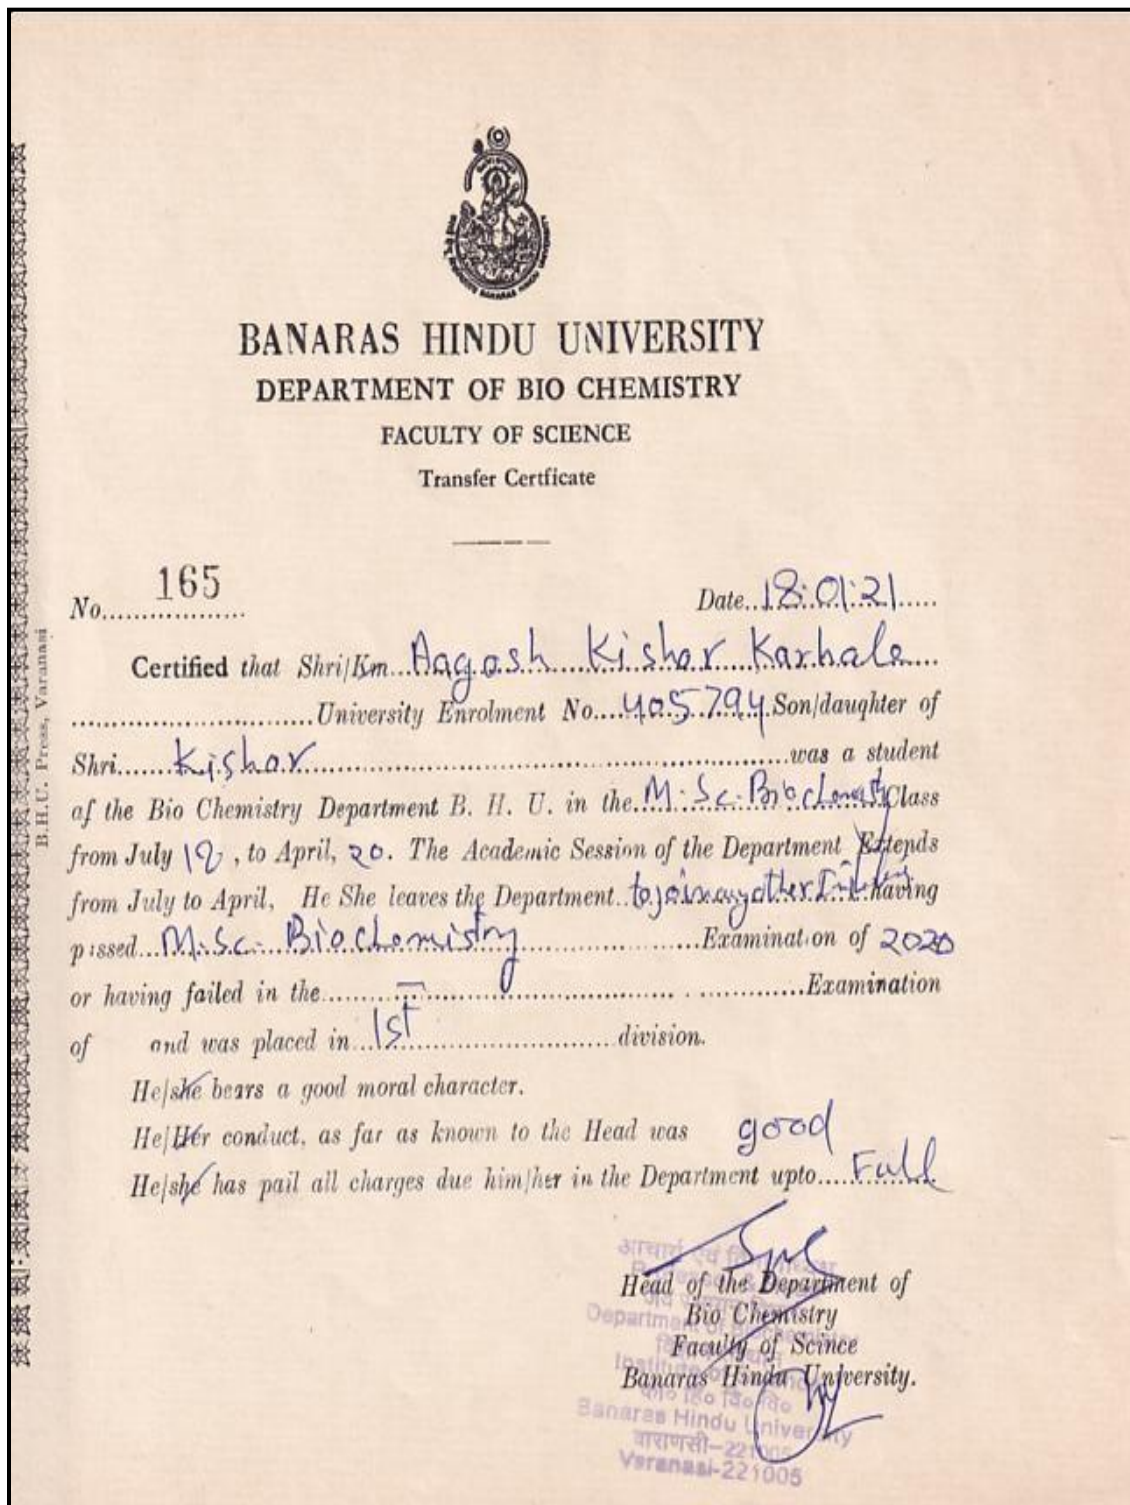 BANARAS HINDU UNIVERSITY
DEPARTMENT OF BIO CHEMISTRY
FACULTY OF SCIENCE
Transfer Certficate
No. 165
Date 18:01:21
Certified that Shri/Km Aagosh Kishor Karhale
University Enrolment No. 405794 Son/dauqhter of
Shri Kishor was a student
af the Bio Chemistry Department B. H. U. in the M.Sc. Biochemistry Class
from July 18, to April, 20. The Academic Session of the Department Extends
from July to April, He She leaves the Department to join any other having
passed M.Sc. Biochemistry Examination of 2020
or having failed in the — Examination
of and was placed in 1st division.
He/she bears a good moral character.
He/Her conduct, as far as known to the Head was good
He/she has pail all charges due him/her in the Department upto Full
Head of the Department of
Bio Chemistry
Faculty of Scince
Banaras Hindu University.
Banaras Hindu University
वाराणसी-221005
Varanasi-221005
B.H.U. Press, Varanasi